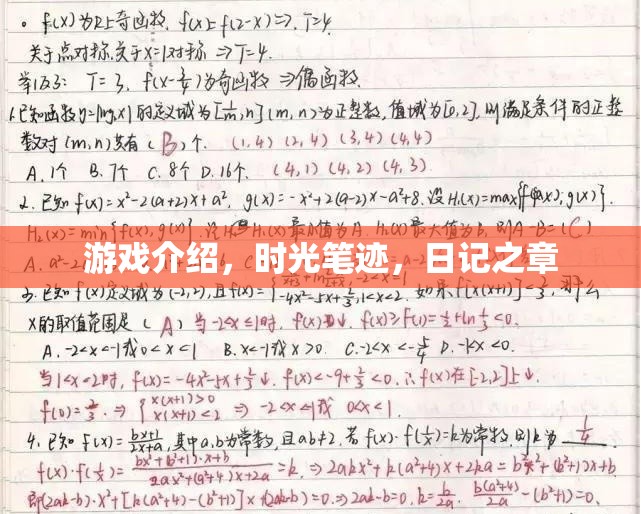 。f(x)为R上奇函数, f(x)=f(2-x)⇒ T=4.
关于点对称,关于x=1对称 ⇒T=4.
T=3, f(x-3/4)为奇函数 ⇒偶函数.
1.已知函数y=|log₂x|的定义域为[1/m,n](m,n)为正整数,值域为[0,2],则满足条件的正整
数对(m,n)共有(B)个. (1,4)(2,4)(3,4)(4,4)
A.1个 B.7个 C.8个 D.16个. (4,1)(4,2)(4,3)
2.已知f(x)=x²-2(a+2)x+a², g(x)=-x²+2(a-2)x-a²+8.设H₁(x)=max{f(x),g(x)}.
H₂(x)=min{f(x),g(x)}. H₁(x)最小值为A, H₂(x)最大值为B,则A-B=(C)
A.a²-2
游戏介绍，时光笔迹，日记之章
3.已知f(x)定义域为(-2,2),且f(x)={ -4x²-5x+2/3,1<x<2. 如果f[x(x+1)]<2/3,那么
x的取值范围是(A) 当-2<x≤1时, f(x)↓, f(x)≥f(1)=1/2+ln1/3<0.
A.-2<x<-1或0<x<1 B.x<-1或x>0. C.-2<x<-5/4 D.-1<x<0.
当1<x<2时, f(x)=-4x²-5x+2/3↓. f(x)<-9+2/3<0.∴f(x)在[-2,2]上↓.
f(0)=2/3.⇒ { x(x+1)>0 x(x+1)<2 ⇒ -2<x<-1或 0<x<1.
4.已知f(x)=bx+1/2x+a,其中a,b为常数,且ab≠2,若f(x)·f(1/x)=k为常数,则k为 1/4
f(x)·f(1/x)=bx²+(b²+1)·x+b/2ax²+(a²+4)x+2a=k.⇒2akx²+k(a²+4)x+2ka=bx²+(b²+1)x+b.
即(2ak-b)·x²+[k(a²+4)-(b²+1)]x+(2ak-b)=0.⇒2ak-b=0.k=b/2a. b(a²+4)/2a-(b²+1)=0.